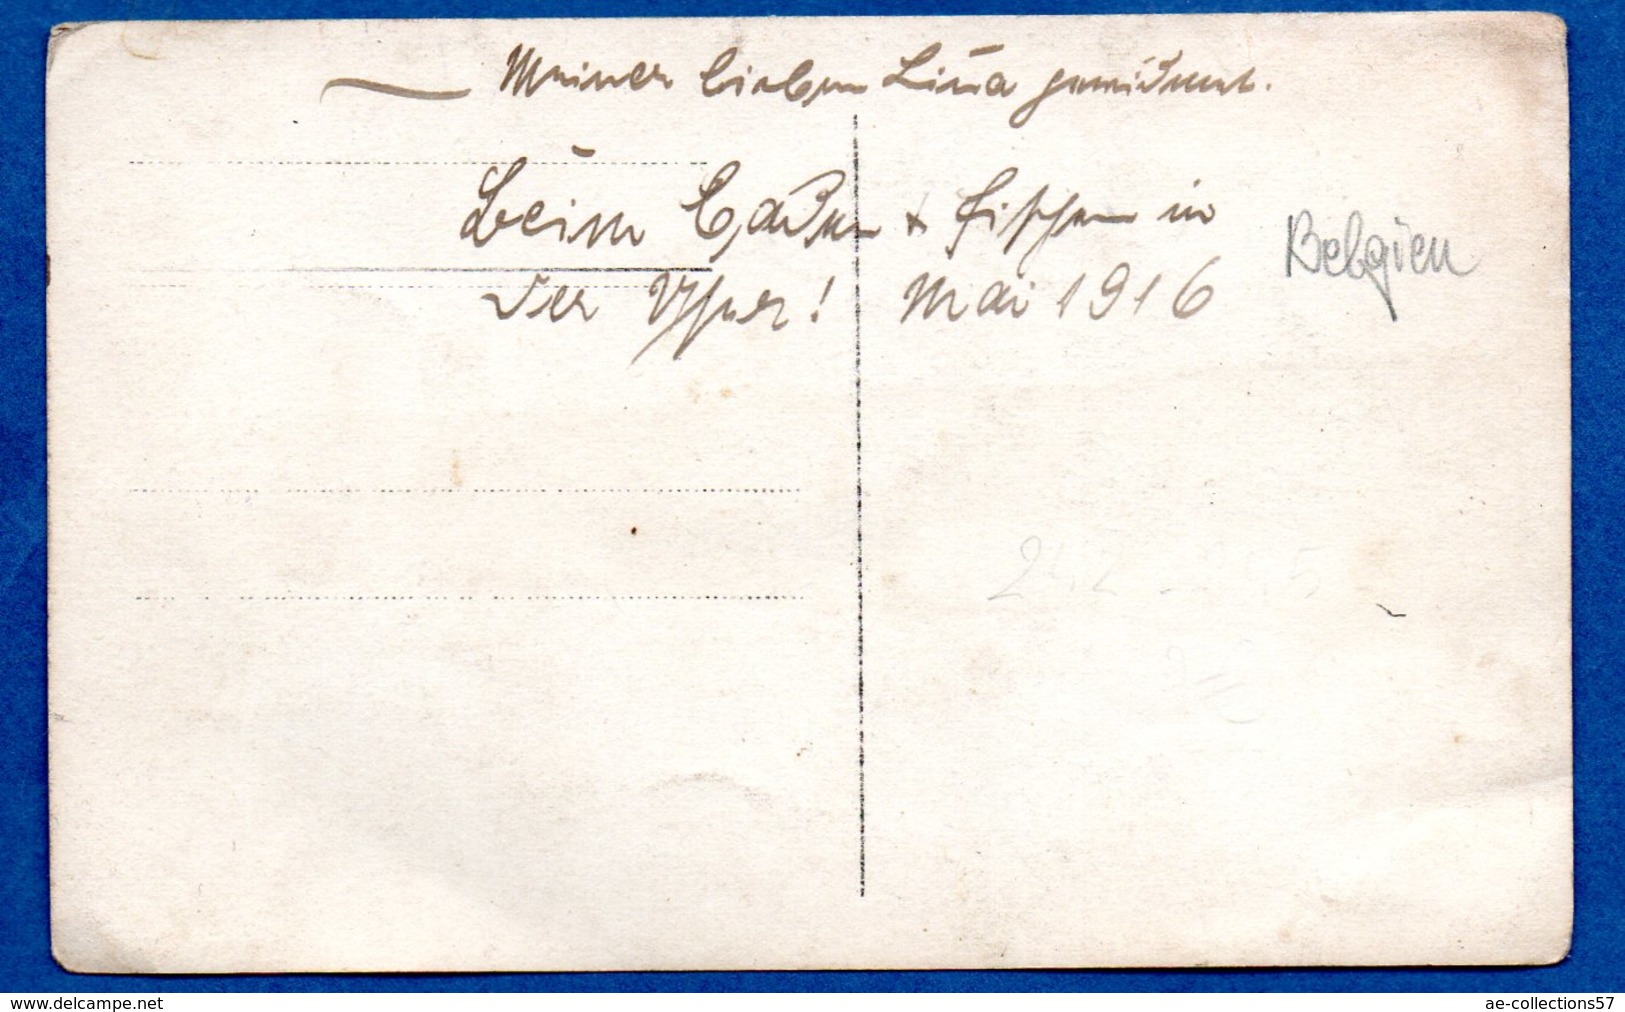 Meiner lieben Lina gewidmet.
Beim Baden + fischen in
der Yser! Mai 1916
Belgien
ae-collections57